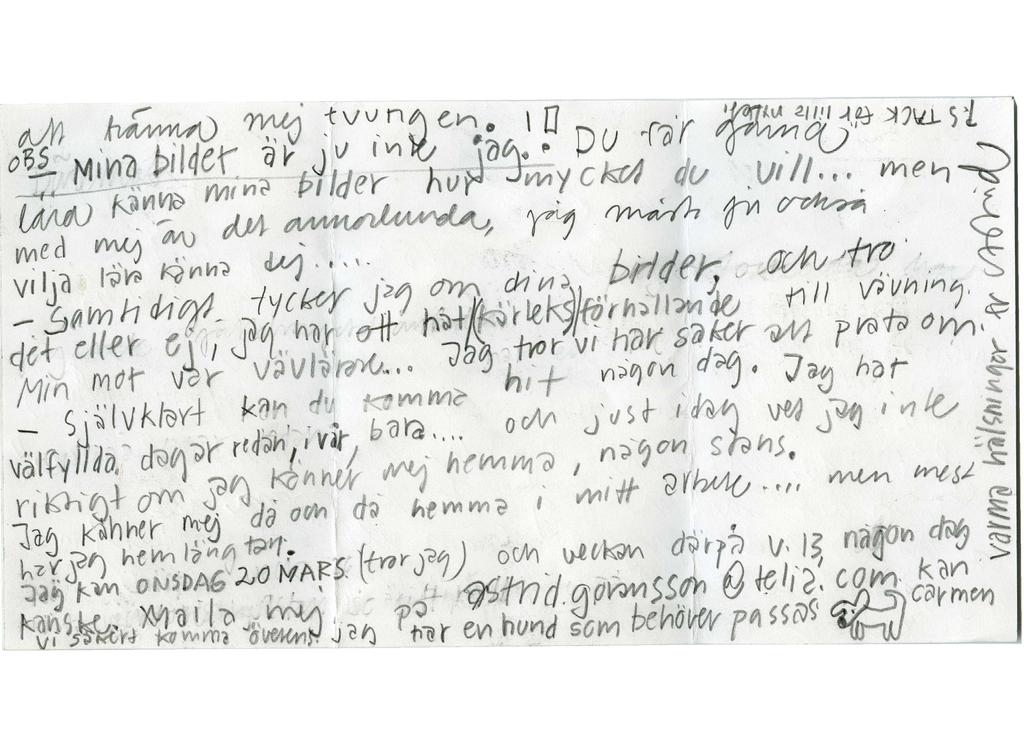 att känna mej tvungen. !
OBS — Mina bilder är ju inte jag.. Du får gärna
lära känna mina bilder hur mycket du vill... men
med mej är det annorlunda, jag måste ju också
vilja lära känna dej.....
— Samtidigt tycker jag om dina bilder, och tro
det eller ej, jag har ett hat/kärleks/förhållande till vävning.
Min mor var vävlärare... Jag tror vi har saker att prata om.
— Självklart kan du komma hit någon dag. Jag har
välfyllda dagar redan, i vår, bara.... och just idag vet jag inte
riktigt om jag känner mej hemma, någon stans.
Jag känner mej då och då hemma i mitt arbete.... men mest
har jag hemlängtan.
Jag kan ONSDAG 20 MARS (tror jag) och veckan därpå v. 13 någon dag
kanske. Maila mej på astrid.goransson@telia.com kan
vi säkert komma överens. jag har en hund som behöver passas
carmen
varma hälsningar fr astrid
P.S TACK för lilla